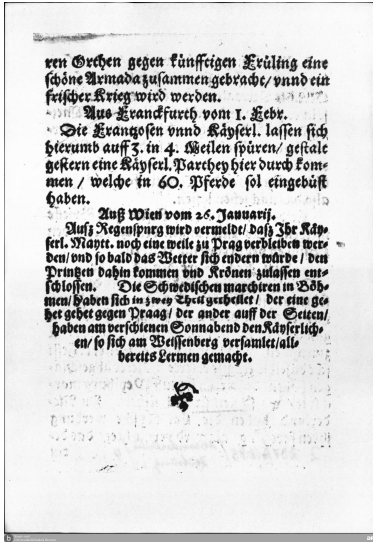 ren Orthen gegen künfftigen Früling eine
schöne Armada zusammen gebracht/ vnnd ein
frischer Krieg wird werden.
Aus Franckfurth vom 1. Febr.
Die Frantzosen vnnd Käyserl. lassen sich
hierumb auff 3. in 4. Meilen spüren/ gestalt
gestern eine Käyserl. Parthey hier durch kom-
men / welche in 60. Pferde sol eingebüst
haben.
Auß Wien vom 26. Januarij.
Ausz Regenspurg wird vermeldet/ dasz Ihr Käy-
serl. Maytt. noch eine weile zu Prag verbleiben wer-
den/ vnd so bald das Wetter sich endern würde/ den
Printzen dahin kommen vnd Krönen zulassen ent-
schlossen. Die Schwedischen marchiren in Böh-
men/ haben sich in zwey Theil getheilet/ der eine ge-
het gehet gegen Praag/ der ander auff der Seiten/
haben am verschienen Sonnabend den Käyserlich-
en/ so sich am Weissenberg versamlet/ all-
bereits Lermen gemacht.